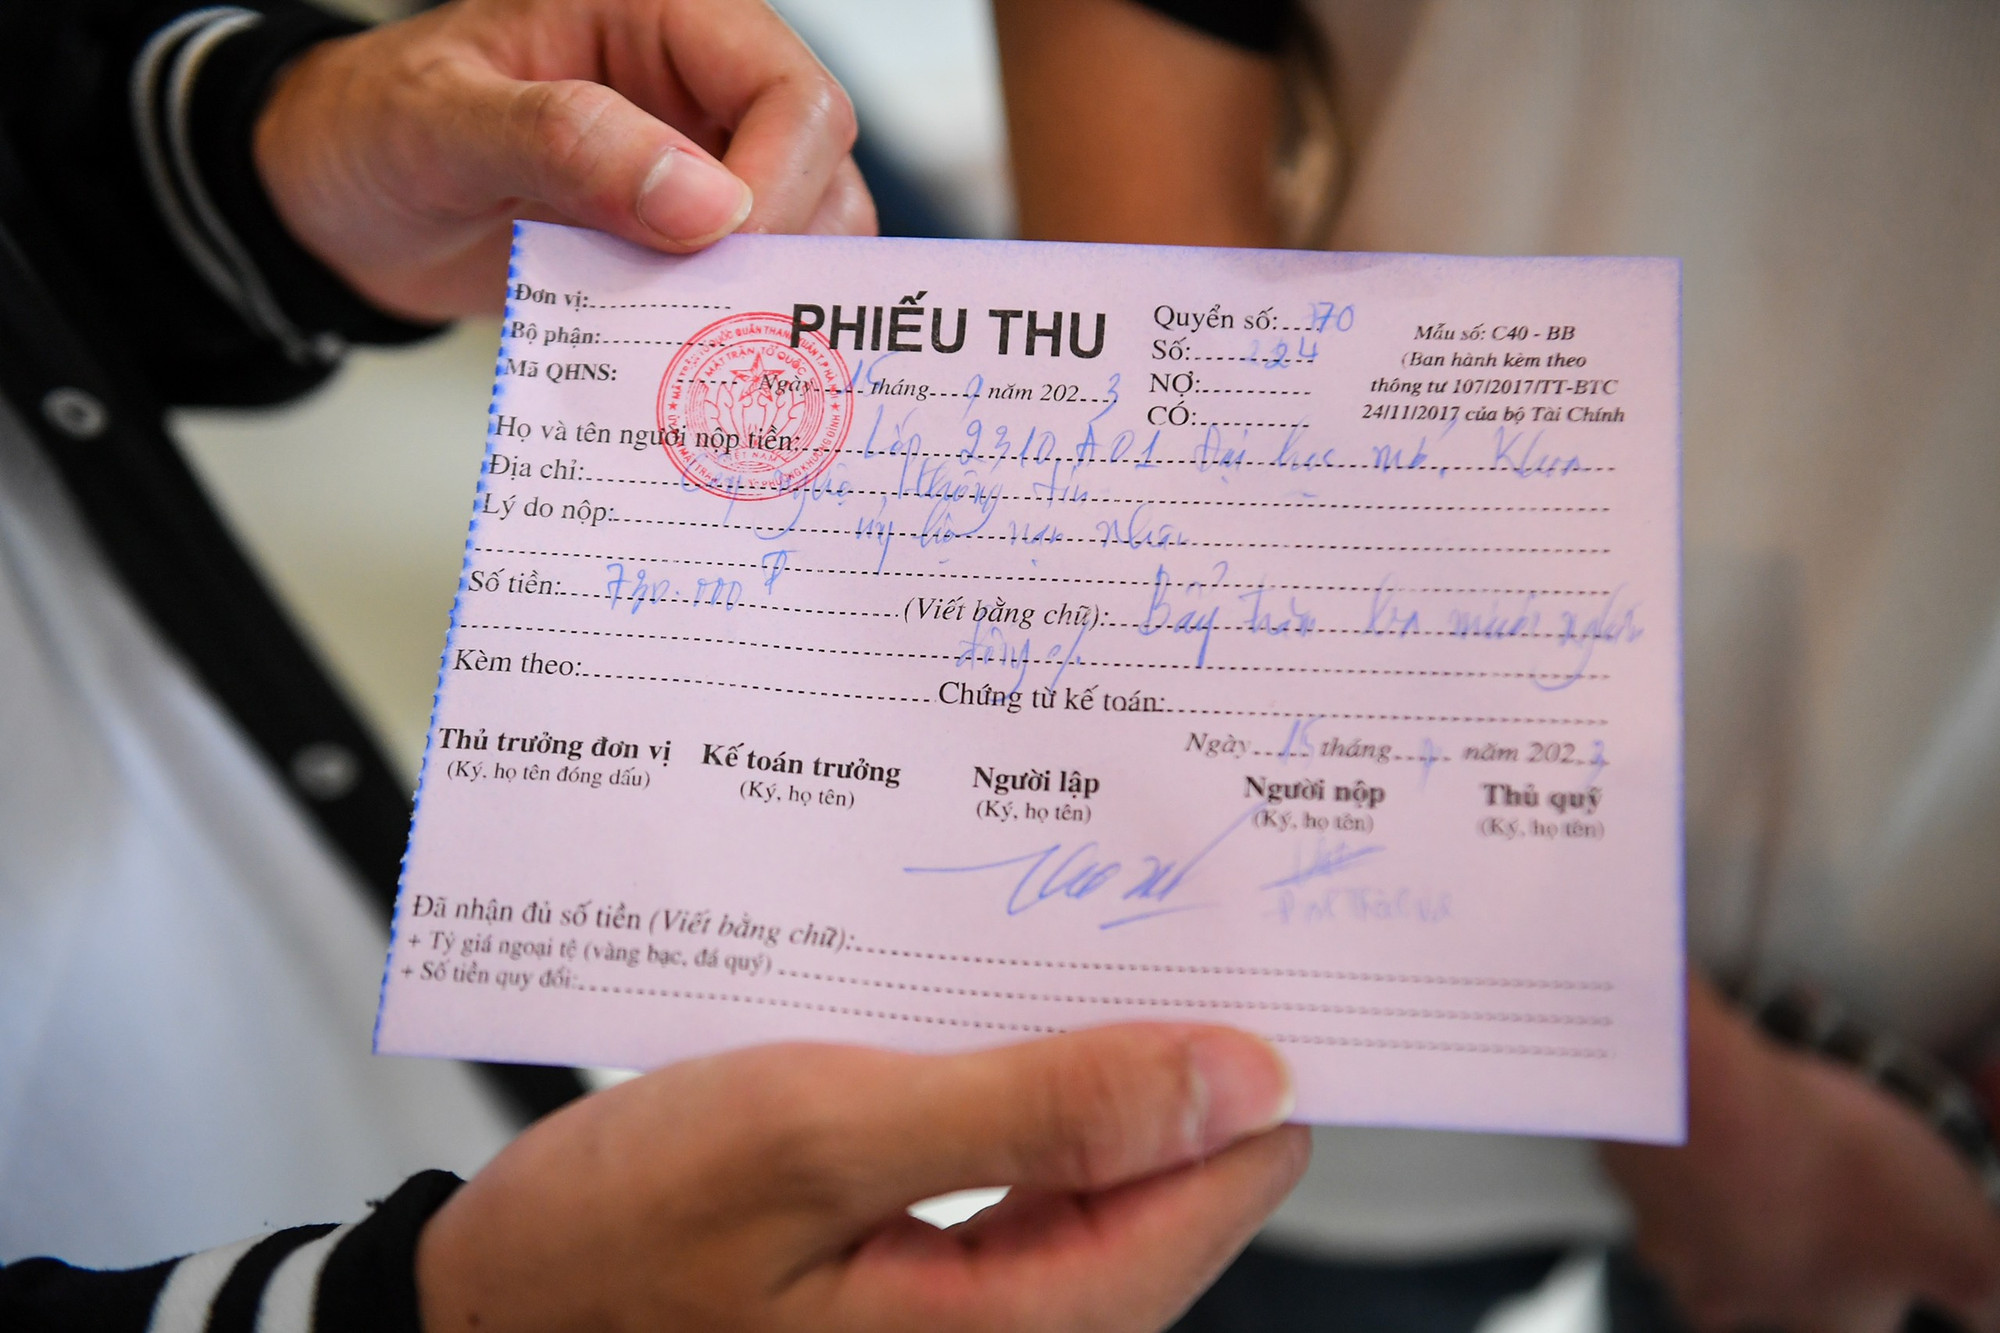 Đơn vị:
Bộ phận:
Mã QHNS:
PHIẾU THU
Ngày 15 tháng 9 năm 2023
Quyển số: 70
Số: 224
NỢ:
CÓ:
Mẫu số: C40 - BB
(Ban hành kèm theo
thông tư 107/2017/TT-BTC
24/11/2017 của bộ Tài Chính
MẶT TRẬN TỔ QUỐC
VIỆT NAM
Họ và tên người nộp tiền: Lớp 2310A01 Đại học mở, Khoa
Địa chỉ: Công nghệ thông tin
Lý do nộp: ủng hộ nạn nhân
Số tiền: 730.000đ (Viết bằng chữ): Bẩy trăm ba mươi nghìn
đồng
Kèm theo: Chứng từ kế toán:
Ngày 15 tháng 9 năm 2023
Thủ trưởng đơn vị Kế toán trưởng Người lập Người nộp Thủ quỹ
(Ký, họ tên đóng dấu) (Ký, họ tên) (Ký, họ tên) (Ký, họ tên) (Ký, họ tên)
Đã nhận đủ số tiền (Viết bằng chữ):
+ Tỷ giá ngoại tệ (vàng bạc, đá quý)
+ Số tiền quy đổi: